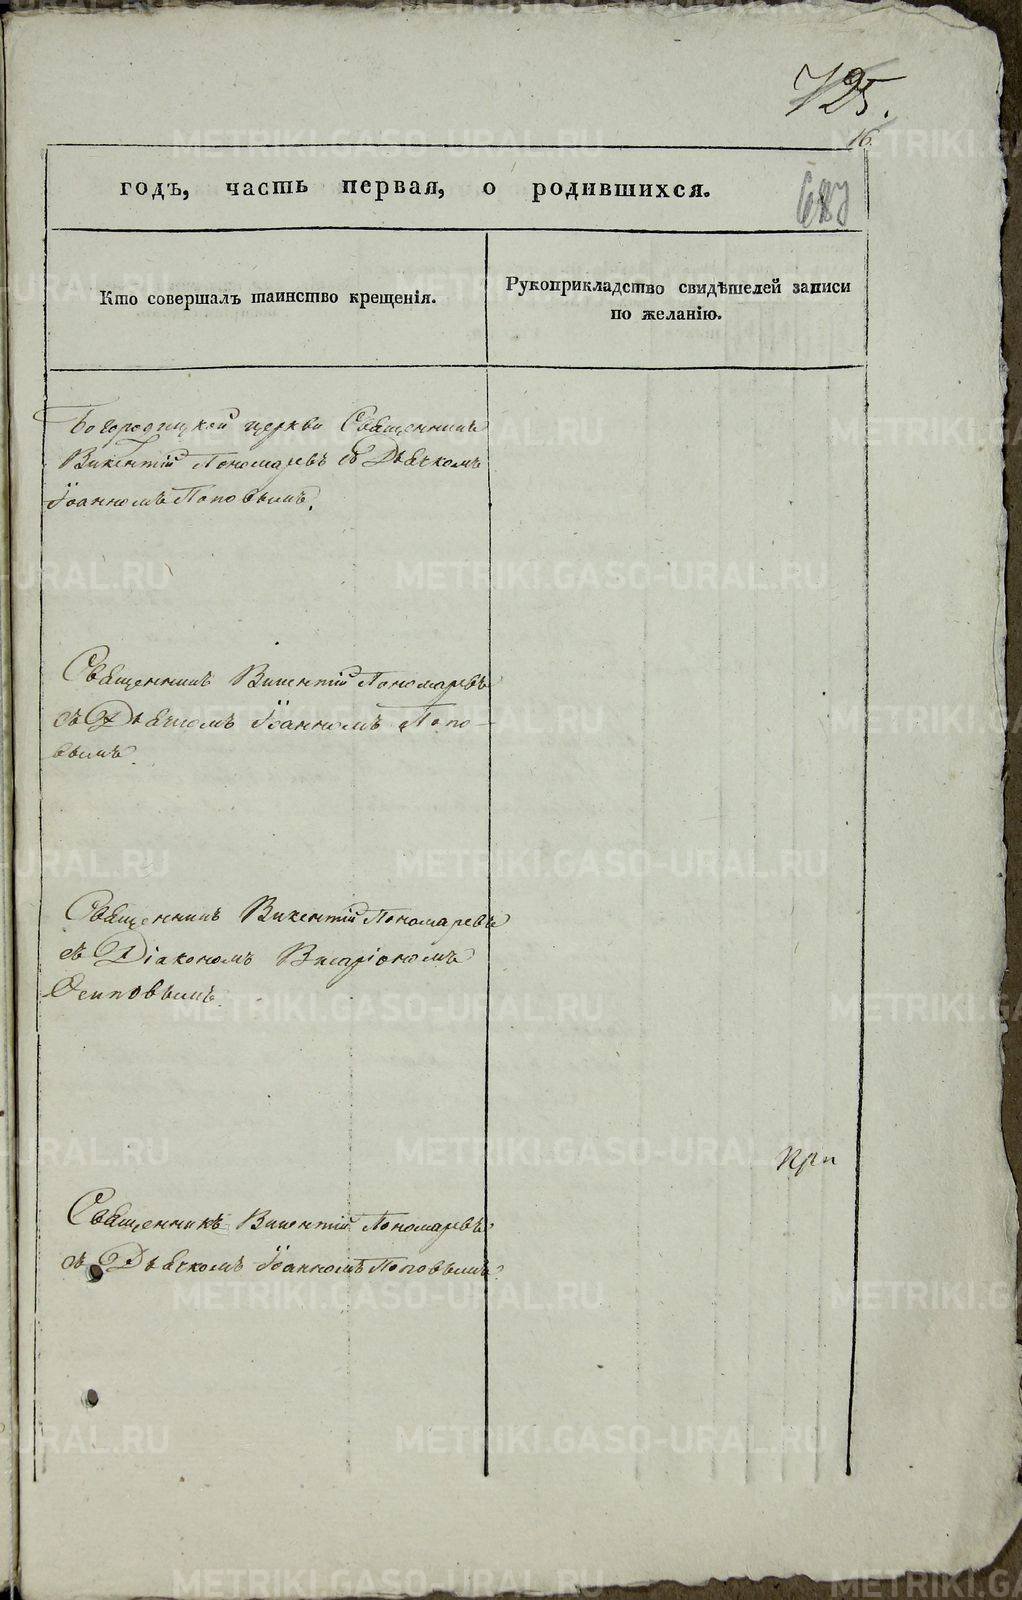 725.
16
годъ, часть первая, о родившихся.
687
Кто совершалъ таинство крещенія.
Рукоприкладство свидѣтелей записи
по желанію.
Богородицкой церкви Священникъ
Викентій Пономаревъ съ Дьячкомъ
Іоанномъ Поповымъ.
Священникъ Викентій Пономаревъ
съ Дьячкомъ Іоанномъ Попо-
вымъ.
Священникъ Викентій Пономаревъ
съ Діакономъ Висаріономъ
Осиповымъ.
При
Священникъ Викентій Пономаревъ
съ Дьячкомъ Іоанномъ Поповымъ.
METRIKI.GASO-URAL.RU